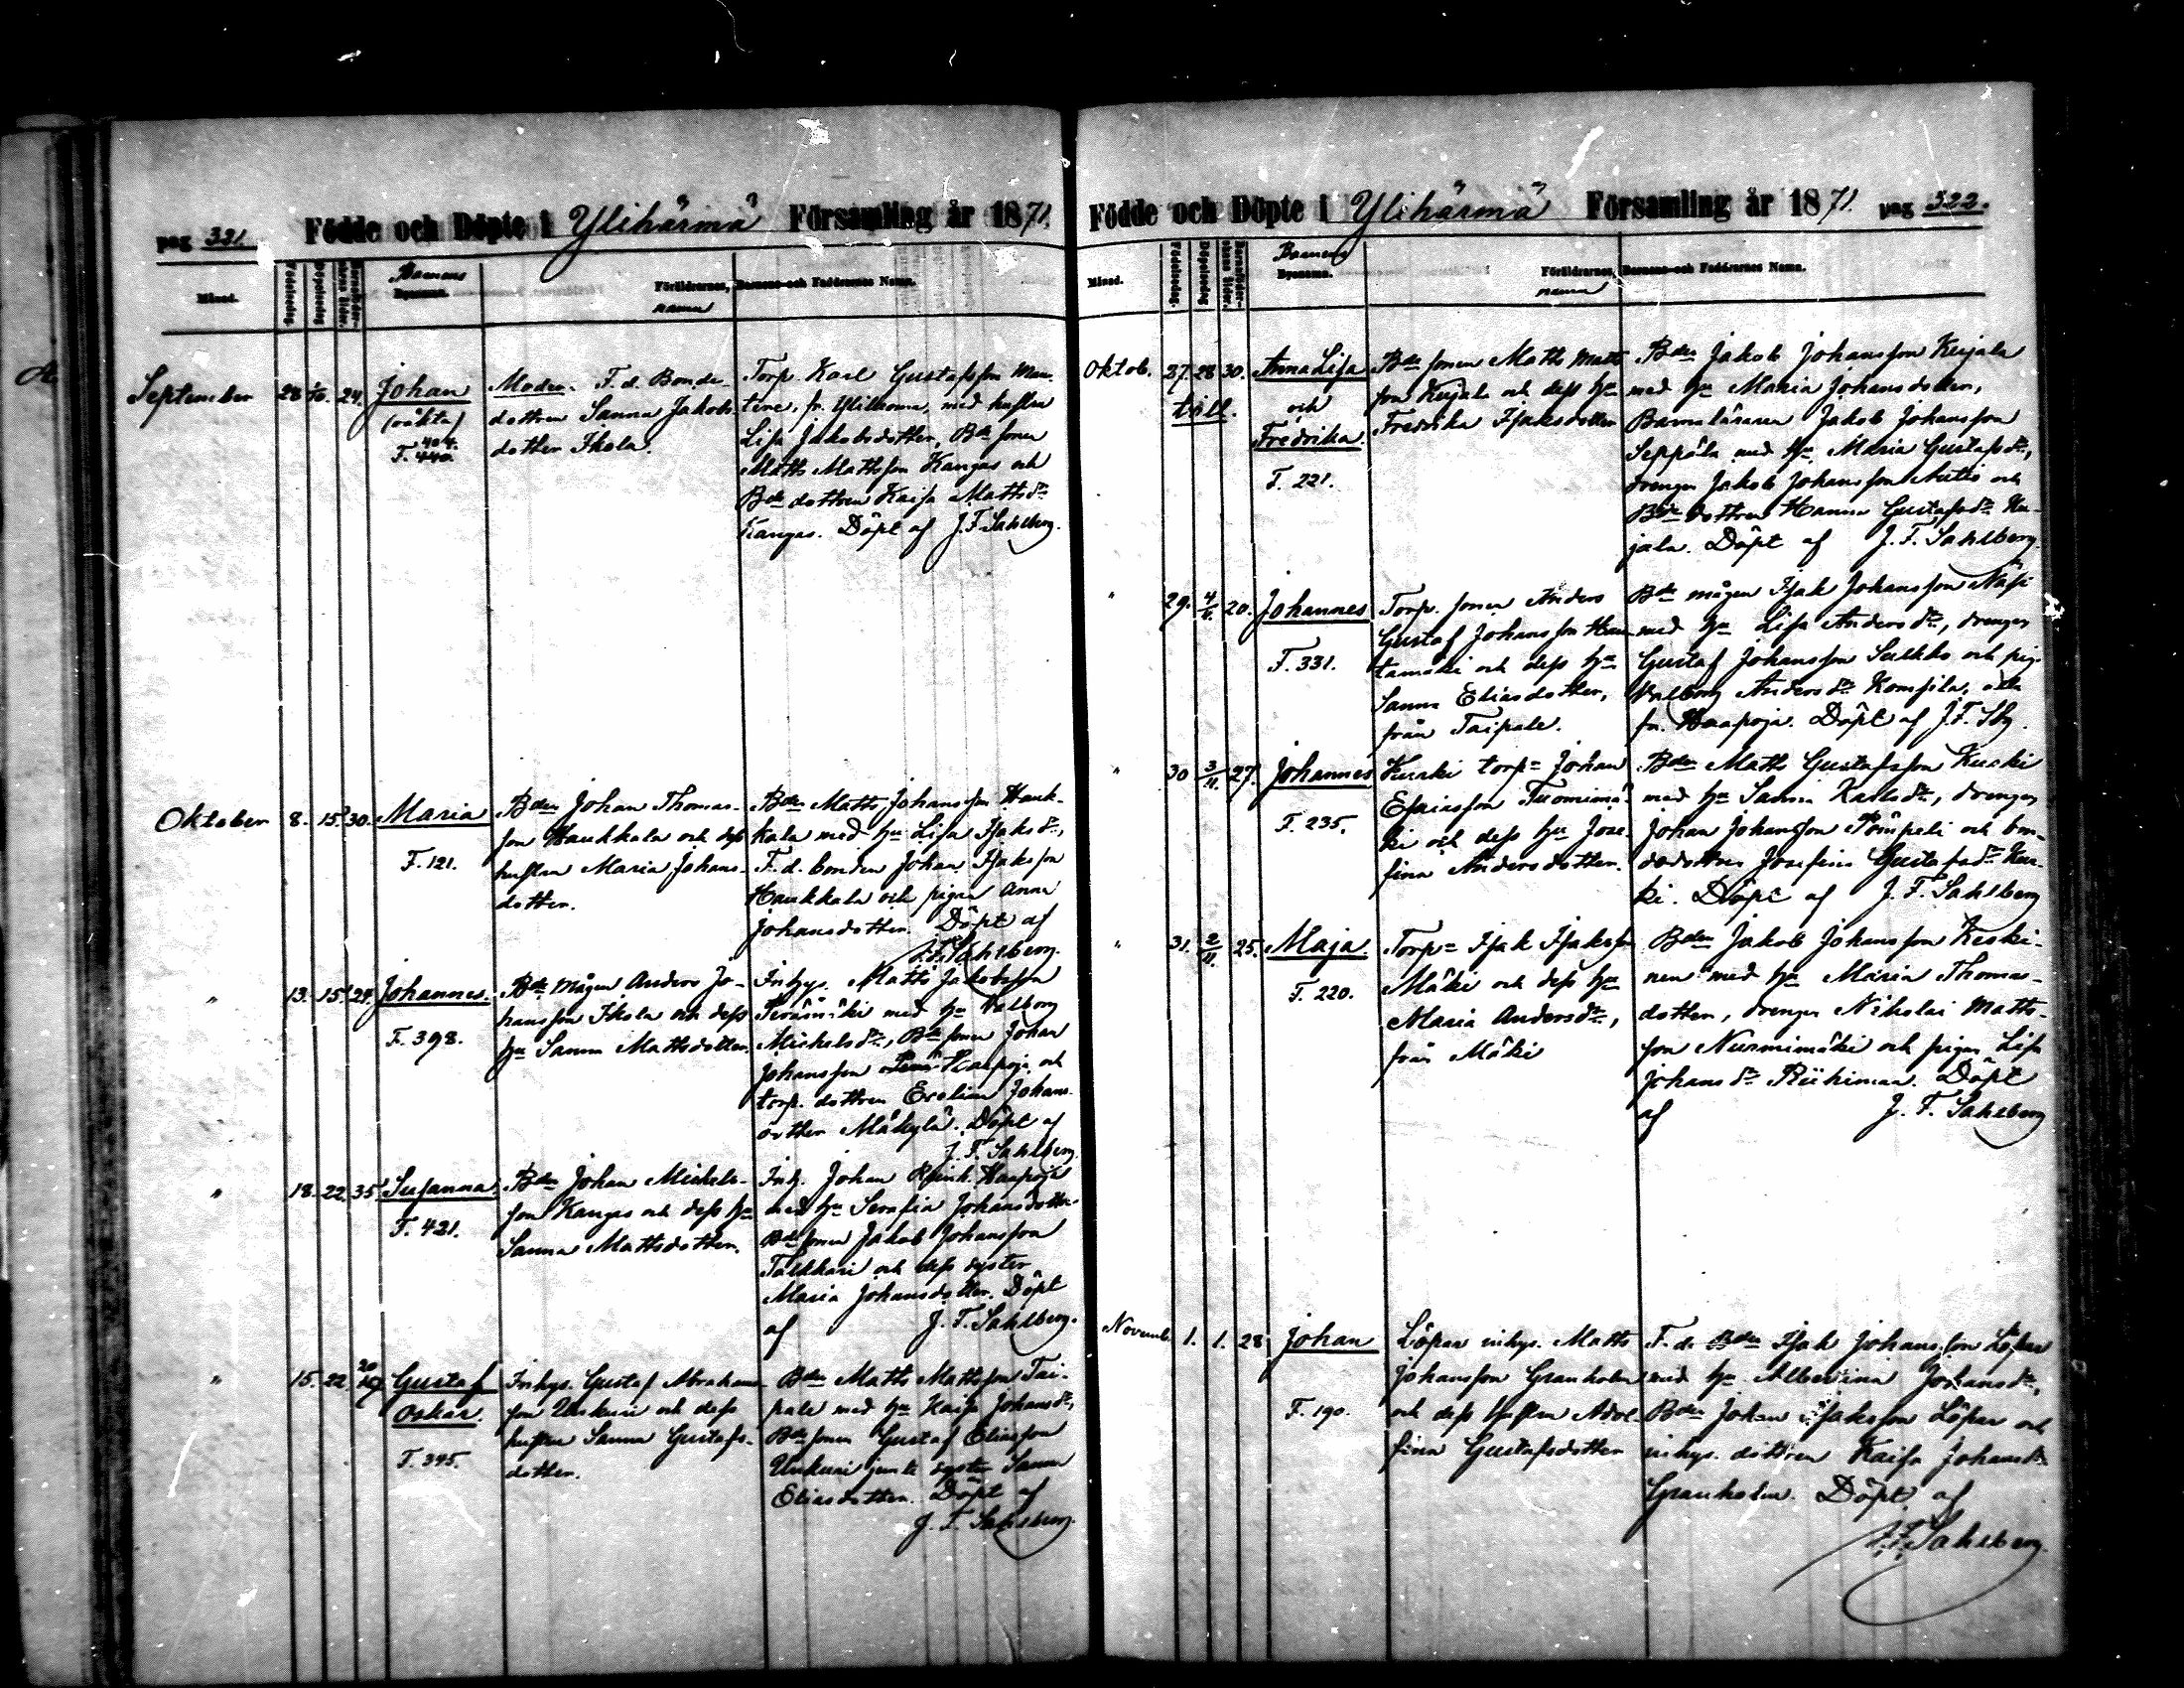 pag 321. Födde och Döpte i Ylihärmä Församling år 1871.
Månad.
Födelsedag.
Döpelsedag.
Barnens
Byenama.
Föräldrarnes, Barnens och Faddrarnes Namn.
namn
September 28 1/10. 24. Johan
(oäkta)
404.
F. 440.
Modren. F. d. Bonde-
dottren Sanna Jakobs-
dotter Ikola.
Torp. Karl Gustafsson
fr. Ylihärmä, med hustru
Lisa Jakobsdotter, Bde sonen
Matts Mattsson Kangas och
Bde dottren Kaisa Mattsdr
Kangas. Döpt af J. F. Sahlberg.
Oktober 8. 15. 30. Maria
F. 121.
Bden Johan Thomas-
son Haukkala och dess
hustru Maria Johans-
dotter.
Bden Matts Johansson Hauk-
kala med hu Lisa Isaksdr,
F. d. bonden Johan Isaksson
Haukkala och pigan Anna
Johansdotter. Döpt af
J. F. Sahlberg.
" 13. 15. 24. Johannes.
F. 398.
Bde mågen Anders Jo-
hansson Ikola och dess
hu Sanna Mattsdotter.
Inhys. Matts Jakobsson
med hu Valborg
Michelsdr, Bde sonen Johan
Johansson Haapoja och
torp. dottren Evelina Johans-
dotter Mäkylä. Döpt af
J. F. Sahlberg.
" 18. 22. 35. Susanna.
F. 421.
Bden Johan Michels-
son Kangas och dess hu
Sanna Mattsdotter.
Inh. Johan Henrik Haapoja
med hu Serafia Johansdotter
Bde sonen Jakob Johansson
Talkkari och dess syster
Maria Johansdotter. Döpt
af J. F. Sahlberg.
" 15. 22. 20 Gustaf
Oskar.
F. 345.
Inhys. Gustaf Abrahams-
son Unkuri och dess
hustru Sanna Gustafs-
dotter.
Bden Matts Mattsson Tai-
pale med hu Kaisa Johansdr,
Bde sonen Gustaf Eliasson
Unkuri jemte syster Sanna
Eliasdotter. Döpt af
J. F. Sahlberg.
Födde och Döpte i Ylihärmä Församling år 1871. pag 322.
Månad.
Födelsedag.
Döpelsedag
Barnens
Byenama.
Föräldrarnes, Barnens och Faddrarnes Namn.
namn
Oktob. 27. 28 30. Anna Lisa
tvill. och
Fredrika.
F. 221.
Bde sonen Matts Matts-
son Kujala och dess hu
Fredrika Isaksdotter
Bden Jakob Johansson Kujala
med hu Maria Johansdotter,
Barnaläraren Jakob Johansson
Seppälä med hu Maria Gustafsdr,
drengen Jakob Johansson Antio och
Bde dottren Hanna Gustafsdr Ku-
jala. Döpt af J. F. Sahlberg.
" 29. 4/11. 20. Johannes
F. 331.
Torp. sonen Anders
Gustaf Johansson Han-
tamäki och dess hu
Sanna Eliasdotter,
från Taipale.
Bde mågen Isak Johansson Näsi
med hu Lisa Andersdr, drengen
Gustaf Johansson Sulkko och pig.
Valborg Andersdr Kompila, alla
fr. Haapoja. Döpt af J. F. Sbg.
" 30 3/11. 27. Johannes
F. 235.
Kuoki torp= Johan
Esaiasson Tuomimä-
ki och dess hu Jose-
fina Andersdotter.
Bden Matts Gustafsson Kuoki
med hu Sanna Karlsdr, drengen
Johan Johansson Pömpeli och bon-
dedottren Josefina Gustafsdr Kuo-
ki. Döpt af J. F. Sahlberg
" 31. 2/11. 25. Maja.
F. 220.
Torp= Isak Isaksson
Mäki och dess hu
Maria Andersdr,
från Mäki
Bden Jakob Johansson Keski-
nen med hu Maria Thomas-
dotter, drengen Nikolai Matts-
son Nurmimäki och pigan Lisa
Johansdr Riihimaa. Döpt
af J. F. Sahlberg
Novemb. 1. 1. 28 Johan
F. 190.
Löpar inhys. Matts
Johansson Granholm
och dess hustru Adol-
fina Gustafsdotter
F. d. Bden Isak Johansson Löpar
med hu Albertina Johansdr,
Bden Johan Isaksson Löpar och
inhys. dottren Kaisa Johansdr
Granholm. Döpt af
J. F. Sahlberg.